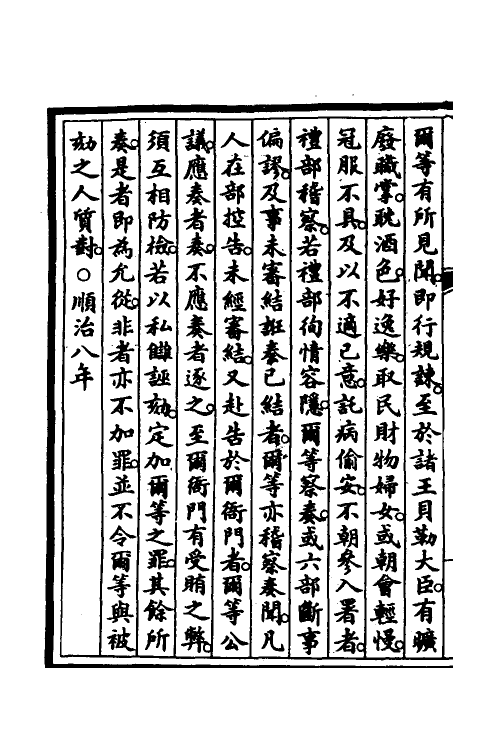 爾等有所見聞即行規諫至於諸王貝勒大臣有曠
廢職掌耽酒色好逸樂取民財物婦女或朝會輕慢
冠服不具及以不適己意託病偷安不朝參入署者
禮部稽察若禮部徇情容隱爾等察奏或六部斷事
偏謬及事未審結誑奏已結者爾等亦稽察奏聞凡
人在部控告未經審結又赴告於爾衙門者爾等公
議應奏者奏不應奏者逐之至爾衙門有受賄之弊
須互相防檢若以私讎誣劾定加爾等之罪其餘所
奏是者即為允從非者亦不加罪並不令爾等與被
劾之人質對○順治八年